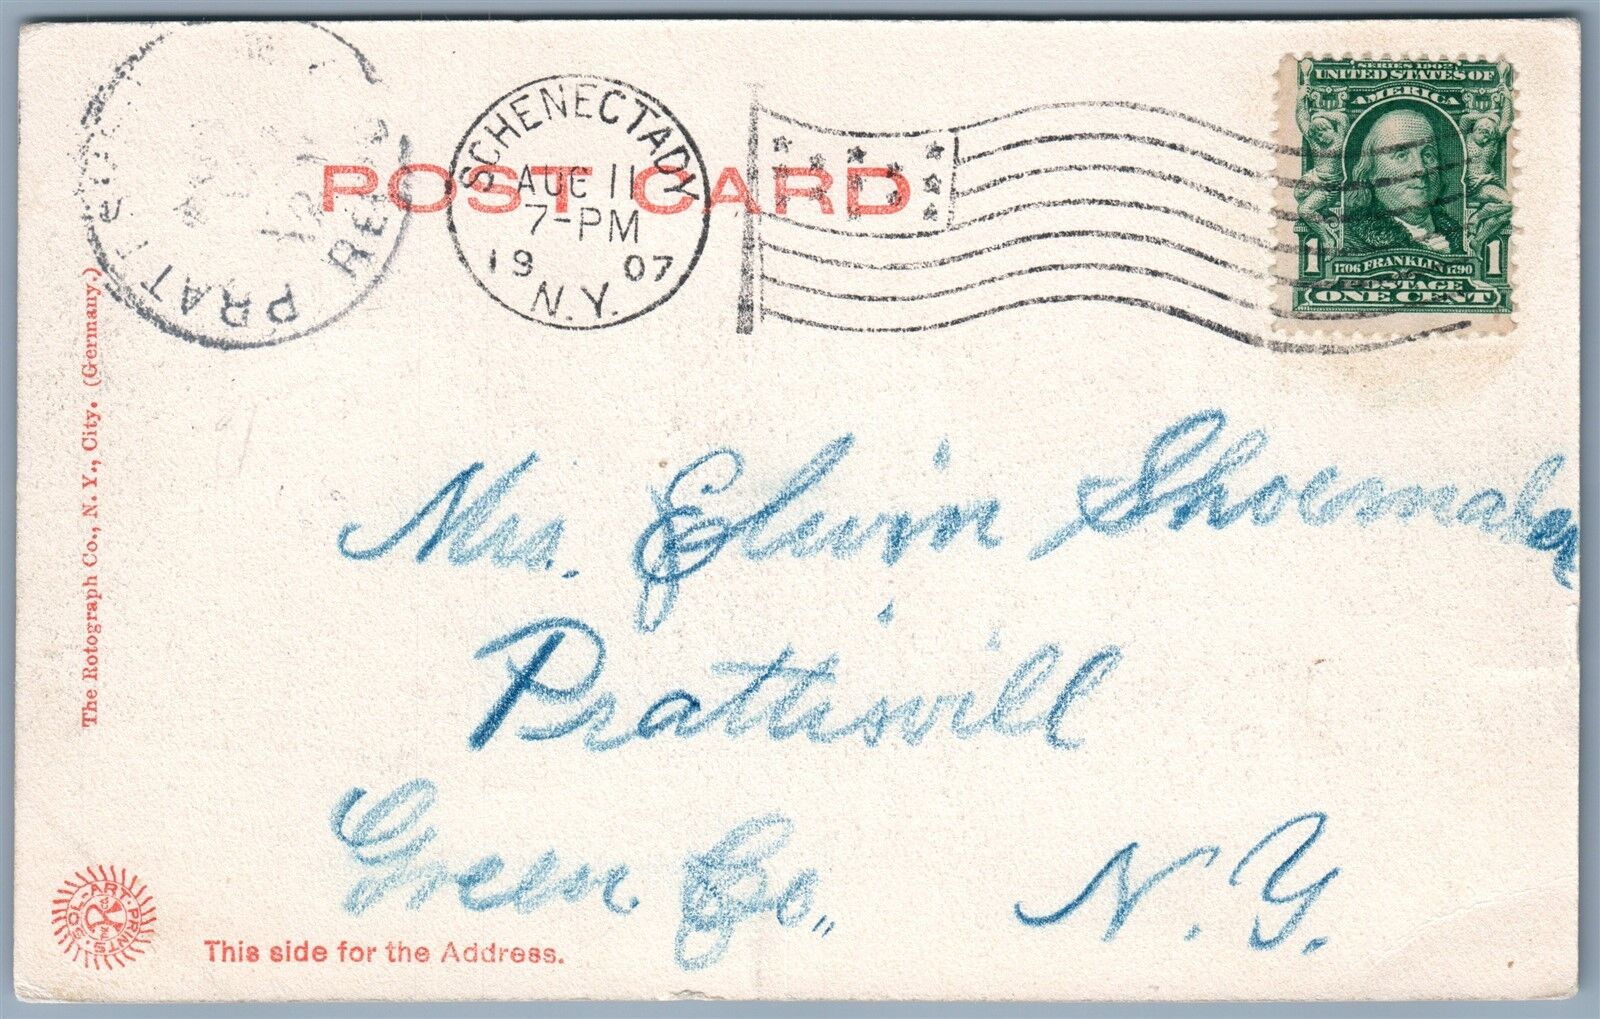 PRATT
REC'D
SCHENECTADY
AUG 11
7-PM
1907
N.Y.
POST CARD
SERIES 1902
UNITED STATES OF
AMERICA
1 1706 FRANKLIN 1790 1
POSTAGE
ONE CENT
The Rotograph Co., N. Y., City. (Germany.)
Mrs. Elwin Shoemaker
Prattsvill
Green Co., N. Y.
SOL-ART PRINTS
This side for the Address.